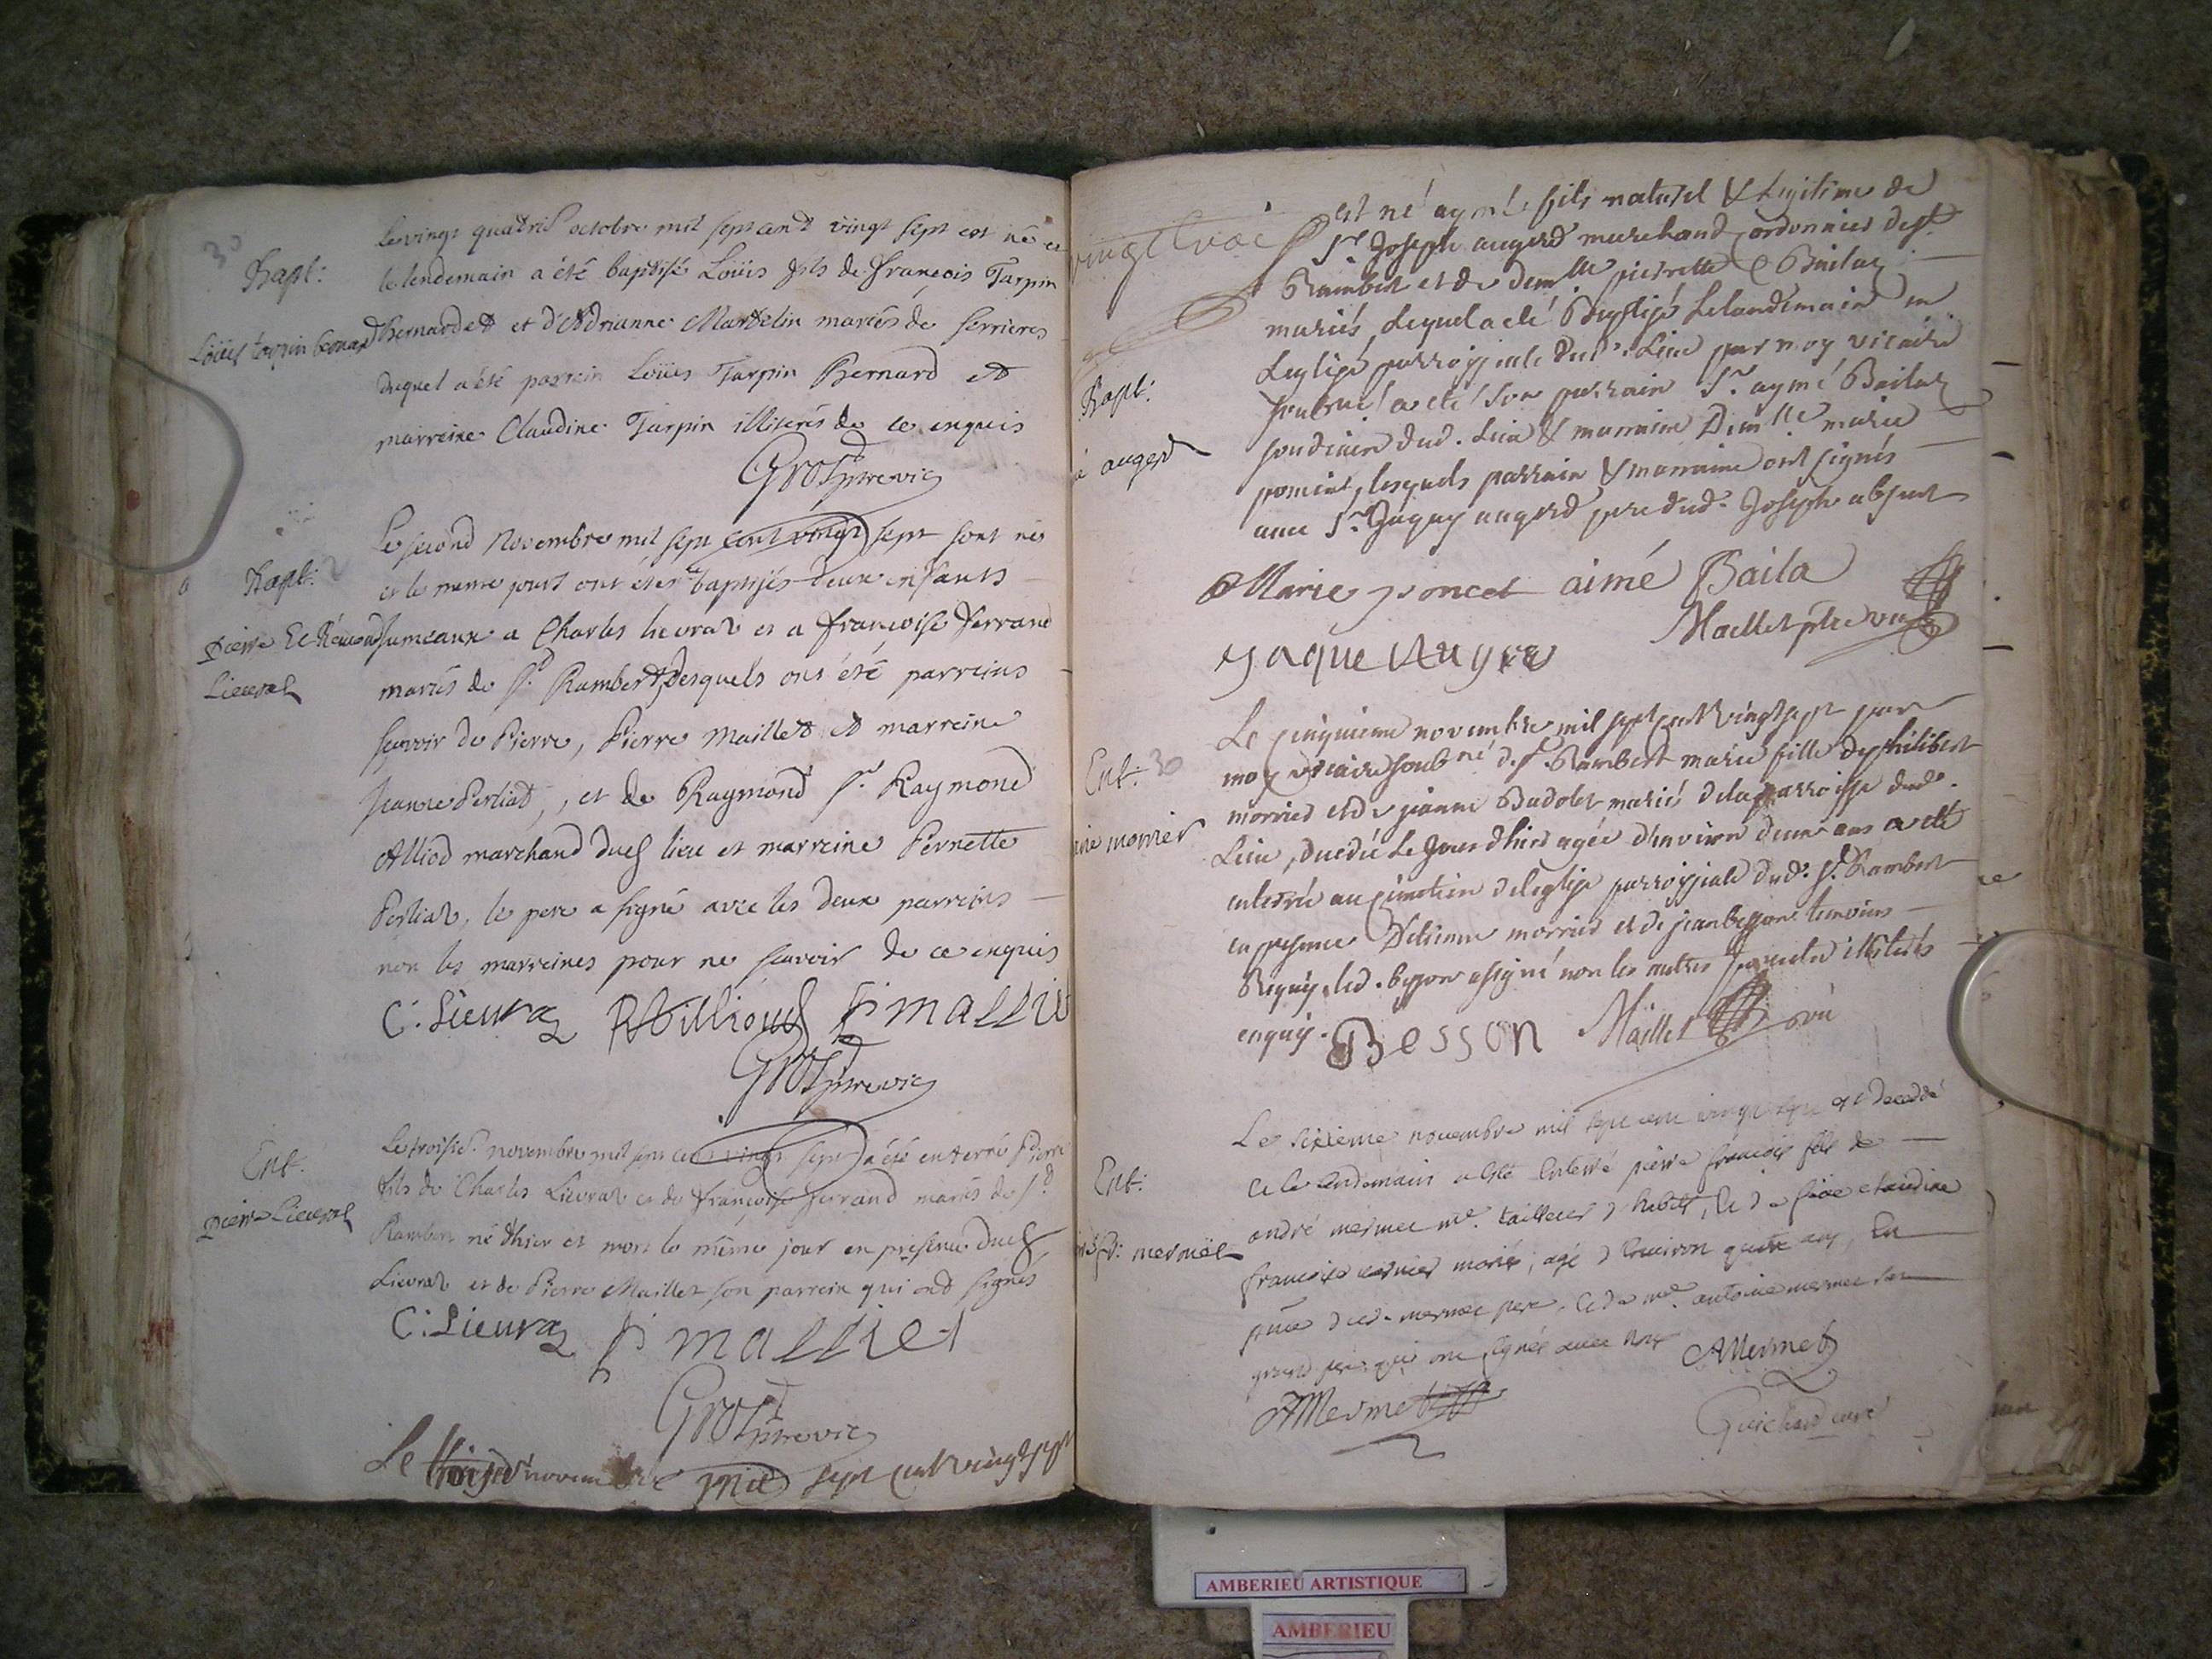 Bapt:
Loüis tarpin bernard
le vingt quatrie octobre mil sept cent vingt sept est né et
le lendemain a été baptisé Loüis fils de françois Tarpin
Bernardet et d'Adrianne Martelin mariés de serrieres
duquel a été parrein Loüis Tarpin Bernard et
marreine Claudine Tarpin illiterés de ce enquis
Gros ptre vic
Bapt:
pierre Et Rémond
Lieuraz
Le second Novembre mil sept cent vingt sept sont nés
et le meme jours ont étés baptisés deux enfants
jumeaux a Charles lievraz et a françoise ferrand
mariés de St Rambert, desquels ont été parreins
scavoir de Pierre, Pierre Maillet et marreine
Jeanne Perliat, et de Raymond Sr. Raymond
Alliod marchand dud lieu et marreine Pernette
Perliat, le pere a signé avec les deux parreins
non les marreines pour ne scavoir de ce enquis
C: Lieuraz R Allioud P mallie
Gros ptre vic
Ent.
pierre Lieuraz
Le troisie novembre mil sept cent vingt sept a été enterré Pierre
fils de Charles Lievraz et de françoise ferrand mariés de St
Rambert né d'hier et mort le même jour en présence dud
Lievraz et de Pierre Maillet son parrein qui ont signés
C: Lieuraz P mallie
Gros ptre vic
Le novembre mil sept cent vingt sept
vingt trois
Bapt:
é augerd
est né aymé fils naturel & legitime de
Sr Joseph augerd marchand cordonnier de St
Rambert et de demlle pierrette Bailaz
mariés, Lequel a eté Baptisé Le landemain en
Leglise parroissiale dud. Lieu par moy vicaire
soubné a eté son parrain Sr aymé Bailaz
dud. Lieu & marraine Demlle marie
poncet, lesquels parrain & marraine ont signés
avec Sr. Jaquey augerd pere dud. Joseph absent
Marie poncet aimé Baila
Maillet ptre vic
Jaque Auger
Ent:
morrier
Le cinquieme novembre mil sept cent vingt sept par
moy vicaire soubné d. St. Rambert marie fille de philibert
morrier et de jeanne Budolet mariés de la parroisse dud.
Lieu, decedé Le Jour d'hier agée d'environ deux ans a eté
enterrée au cimetiere de leglise parroissiale dud. St. Rambert
en presence d'etienne morrier et de jean besson temoins
Requis, led. besson a signé non les autres illiterés
enquis. Besson Maillet vic
Ent:
fr: mermet
Le sixieme novembre mil sept cent vingt sept est decedé
et le lendemain a été Enterré pierre françois fils de
andré mermet me. tailleur d'habits, et de claudine
françoise mariés, agé d'Environ quatre ans, En
pnce dud. mermet pere, et de me. antoine mermet son
grand pere qui ont signés avec nous AMermet
AMermet
Guichard curé
AMBERIEU ARTISTIQUE
AMBERIEU